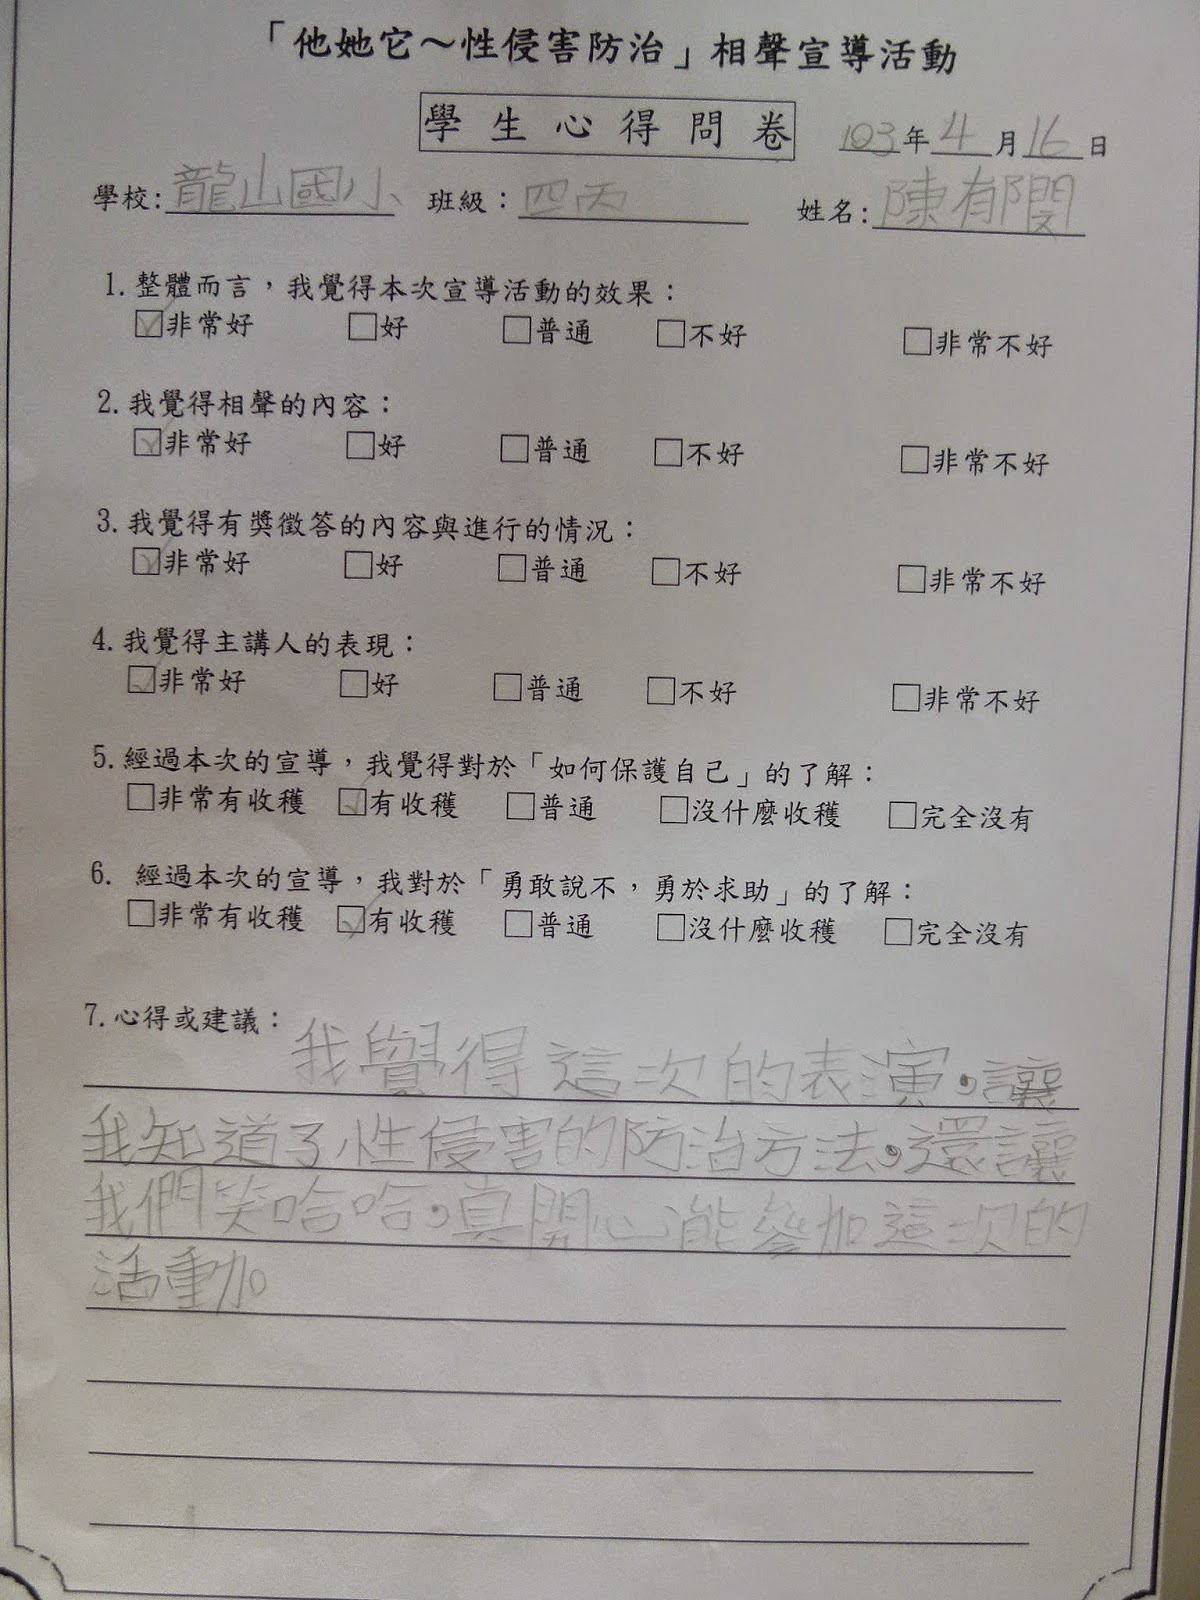 「他她它～性侵害防治」相聲宣導活動
學生心得問卷
103年4月16日
學校:龍山國小 班級：四丙 姓名:陳郁閔
1.整體而言，我覺得本次宣導活動的效果：
☑非常好 □好 □普通 □不好 □非常不好
2.我覺得相聲的內容：
☑非常好 □好 □普通 □不好 □非常不好
3.我覺得有獎徵答的內容與進行的情況：
☑非常好 □好 □普通 □不好 □非常不好
4.我覺得主講人的表現：
☑非常好 □好 □普通 □不好 □非常不好
5.經過本次的宣導，我覺得對於「如何保護自己」的了解：
□非常有收穫 ☑有收穫 □普通 □沒什麼收穫 □完全沒有
6. 經過本次的宣導，我對於「勇敢說不，勇於求助」的了解：
□非常有收穫 ☑有收穫 □普通 □沒什麼收穫 □完全沒有
7.心得或建議：我覺得這次的表演，讓
我知道了性侵害的防治方法，還讓
我們笑哈哈，真開心能參加這次的
活動加